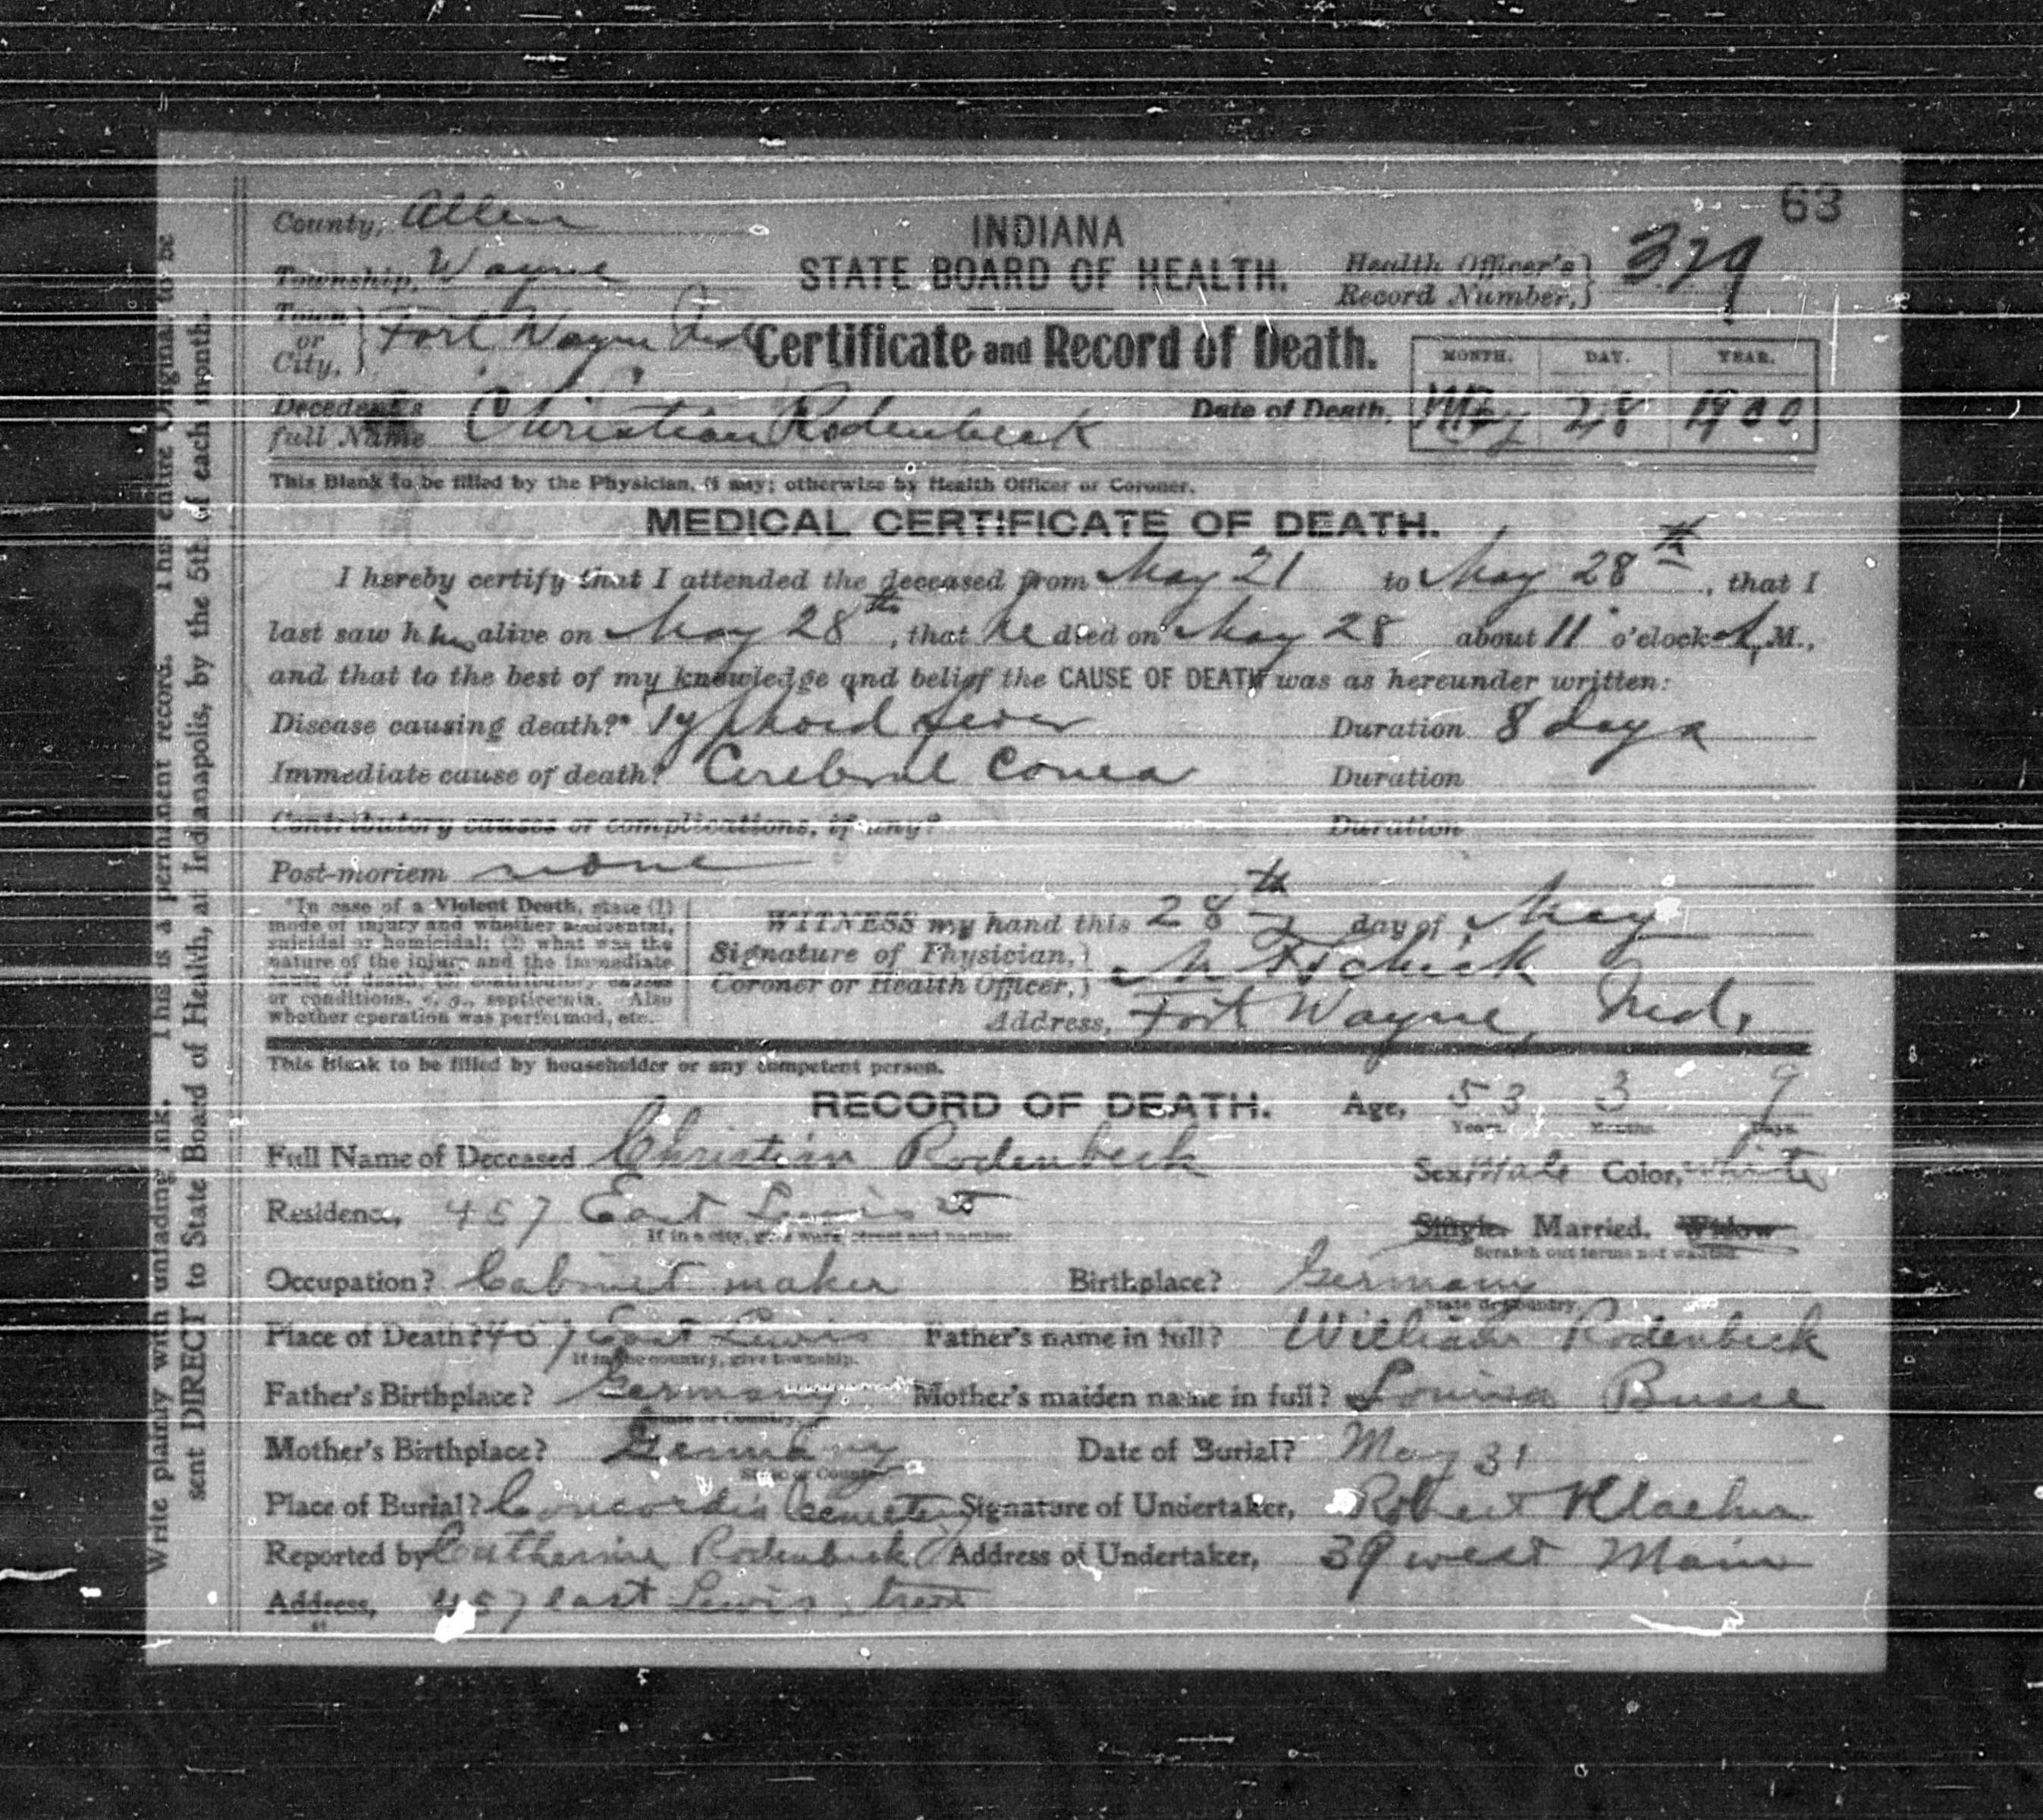 63
County, Allen
INDIANA
Township, Wayne
STATE BOARD OF HEALTH.
Health Officer's Record Number, 379
Town or City, Fort Wayne Ind
Certificate and Record of Death.
MONTH. DAY. YEAR.
Decedent's full Name Christian Rodenbeck
Date of Death, May 28 1900
This Blank to be filled by the Physician, if any; otherwise by Health Officer or Coroner.
MEDICAL CERTIFICATE OF DEATH.
I hereby certify that I attended the deceased from May 21 to May 28th, that I
last saw him alive on May 28th, that he died on May 28 about 11 o'clock A.M.,
and that to the best of my knowledge and belief the CAUSE OF DEATH was as hereunder written:
Disease causing death?* Typhoid fever Duration 8 days
Immediate cause of death? Cerebral Coma Duration
Contributory causes or complications, if any? Duration
Post-mortem none
*In case of a Violent Death, state (1)
mode of injury and whether accidental,
suicidal or homicidal; (2) what was the
nature of the injury and the immediate
cause of death; (3) contributory causes
or conditions, e. g., septicemia. Also
whether operation was performed, etc.
WITNESS my hand this 28th day of May
Signature of Physician,
Coroner or Health Officer,
Address, Fort Wayne, Ind.
This Blank to be filled by householder or any competent person.
RECORD OF DEATH. Age, 53 3 9
Years. Months. Days.
Full Name of Deceased Christian Rodenbeck Sex, Male Color, White
Residence, 457 East Lewis st Single. Married. Widow
If in a city, give ward, street and number. Scratch out terms not wanted.
Occupation? Cabinet maker Birthplace? Germany
State or Country.
Place of Death? 457 East Lewis Father's name in full? William Rodenbeck
If in the country, give township.
Father's Birthplace? Germany Mother's maiden name in full? Louisa Busse
State or Country.
Mother's Birthplace? Germany Date of Burial? May 31
State or Country
Place of Burial? Concordia Cemetery Signature of Undertaker, Robert Klaehn
Reported by Catherine Rodenbeck Address of Undertaker, 39 west Main
Address, 457 east Lewis street
Write plainly with unfading ink. This is a permanent record. This entire Original to be
sent DIRECT to State Board of Health, at Indianapolis, by the 5th of each month.